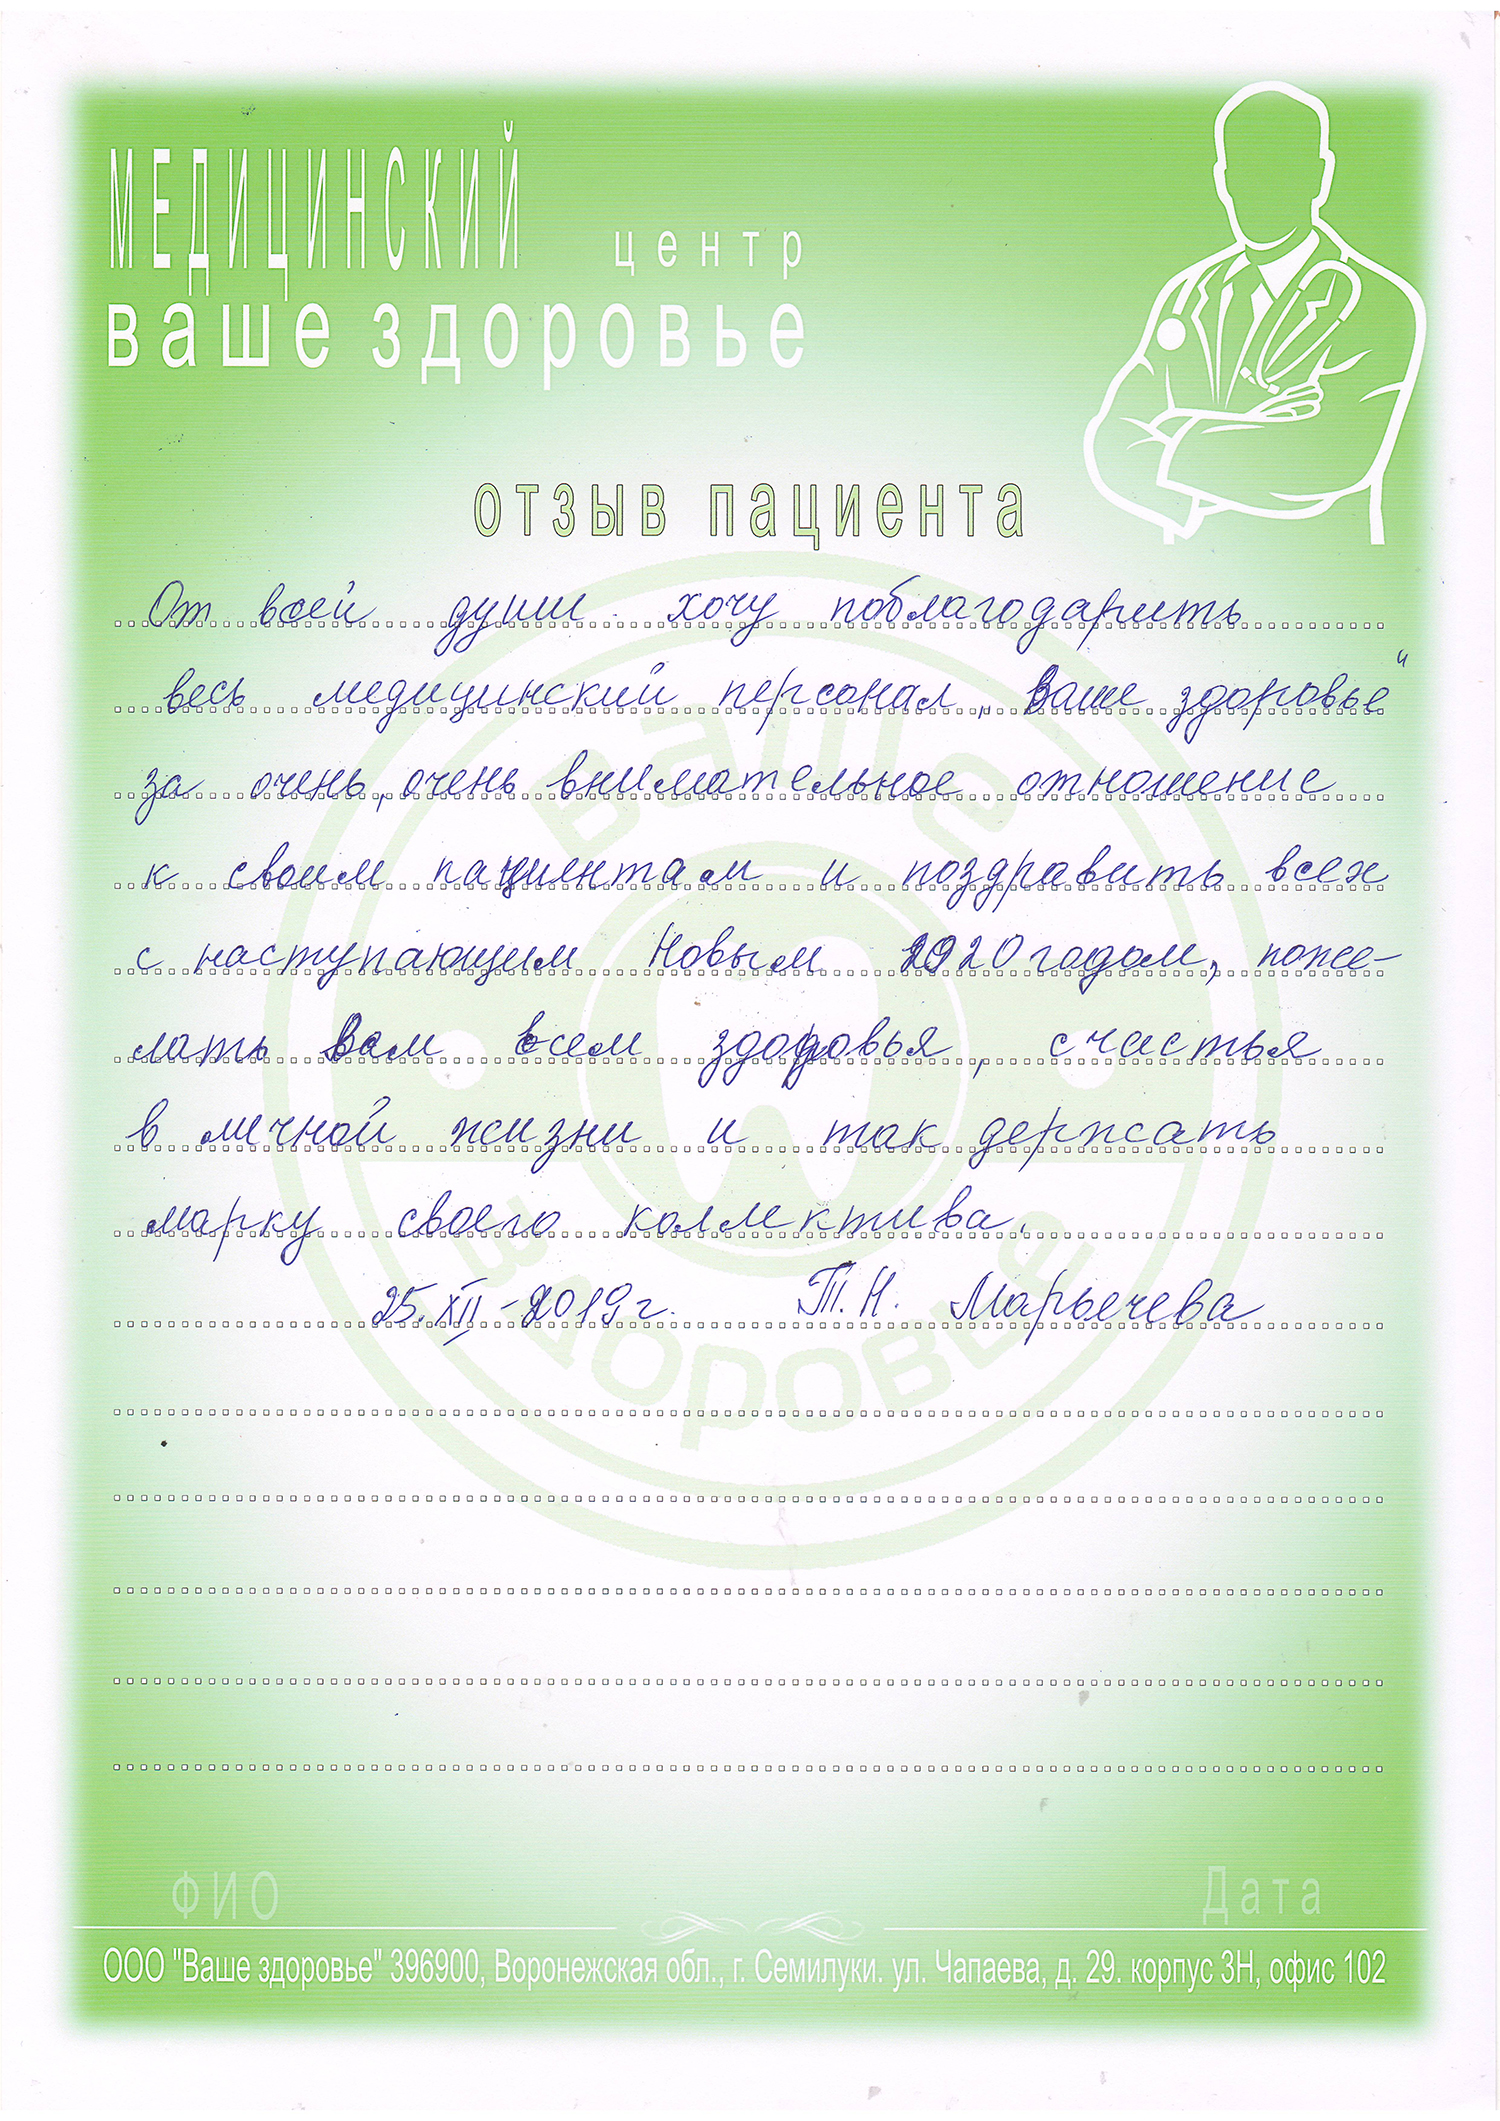 МЕДИЦИНСКИЙ центр
ваше здоровье
отзыв пациента
От всей души хочу поблагодарить
весь медицинский персонал „Ваше здоровье“
за очень, очень внимательное отношение
к своим пациентам и поздравить всех
с наступающим Новым 2020 годом, поже-
лать Вам всем здоровья, счастья
в личной жизни и так держать
марку своего коллектива.
25.XII-2019г. Т.Н. Марьечева
ваше
здоровье
ФИО Дата
ООО "Ваше здоровье" 396900, Воронежская обл., г. Семилуки. ул. Чапаева, д. 29. корпус 3Н, офис 102